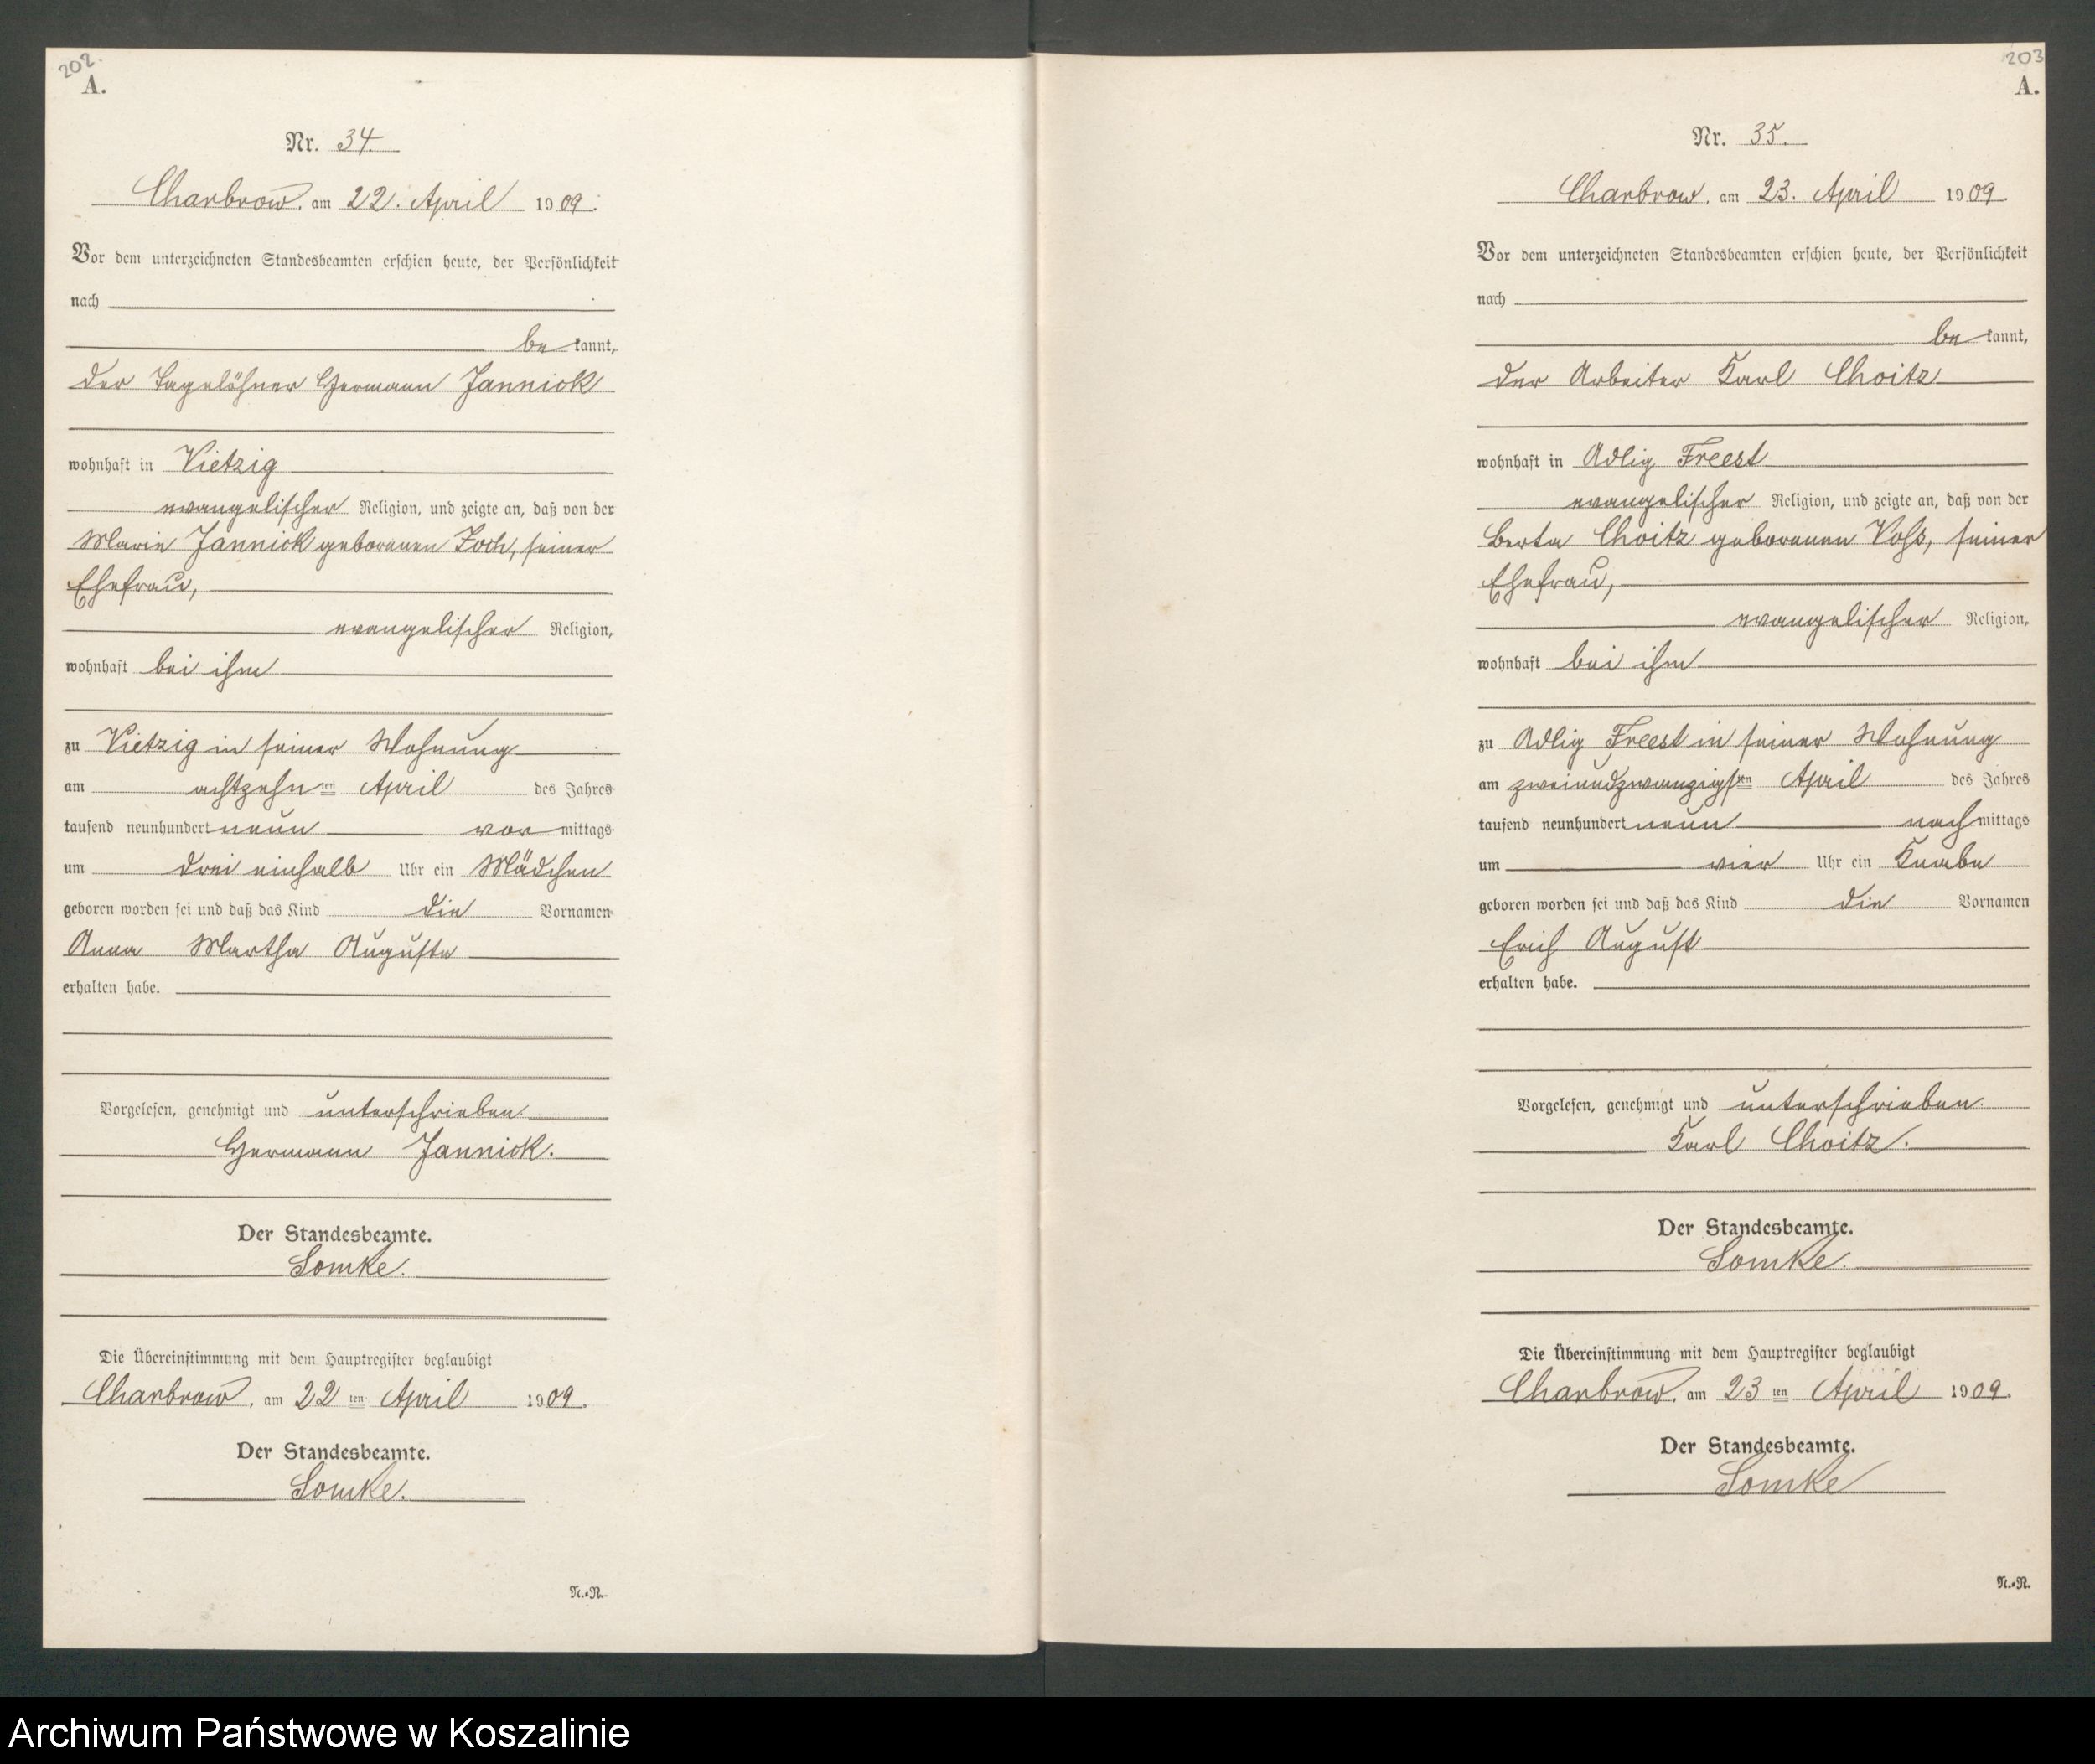 202.
A.
Nr. 34.
Charbrow, am 22. April 1909.
Vor dem unterzeichneten Standesbeamten erschien heute, der Persönlichkeit
nach
be kannt,
der Tagelöhner Hermann Jannick
wohnhaft in Vietzig
evangelischer Religion, und zeigte an, daß von der
Marie Jannick geborenen Zoch, seiner
Ehefrau,
evangelischer Religion,
wohnhaft bei ihm
zu Vietzig in seiner Wohnung
am achtzehn ten April des Jahres
tausend neunhundert neun vor mittags
um drei einhalb Uhr ein Mädchen
geboren worden sei und daß das Kind die Vornamen
Anna Martha Auguste
erhalten habe.
Vorgelesen, genehmigt und unterschrieben.
Hermann Jannick.
Der Standesbeamte.
Lomke.
Die Übereinstimmung mit dem Hauptregister beglaubigt
Charbrow, am 22 ten April 1909.
Der Standesbeamte.
Lomke.
N.=R.
203
A.
Nr. 35.
Charbrow, am 23. April 1909.
Vor dem unterzeichneten Standesbeamten erschien heute, der Persönlichkeit
nach
be kannt,
der Arbeiter Karl Choitz
wohnhaft in Adlig Freest
evangelischer Religion, und zeigte an, daß von der
Berta Choitz geborenen Voß, seiner
Ehefrau,
evangelischer Religion,
wohnhaft bei ihm
zu Adlig Freest in seiner Wohnung
am zweiundzwanzigsten April des Jahres
tausend neunhundert neun nach mittags
um vier Uhr ein Knabe
geboren worden sei und daß das Kind die Vornamen
Erich August
erhalten habe.
Vorgelesen, genehmigt und unterschrieben.
Karl Choitz.
Der Standesbeamte.
Lomke.
Die Übereinstimmung mit dem Hauptregister beglaubigt
Charbrow, am 23 ten April 1909.
Der Standesbeamte.
Lomke
N.=R.
Archiwum Państwowe w Koszalinie